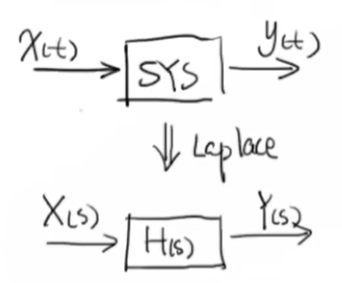 X(t) SYS y(t)
Laplace
X(s) H(s) Y(s)